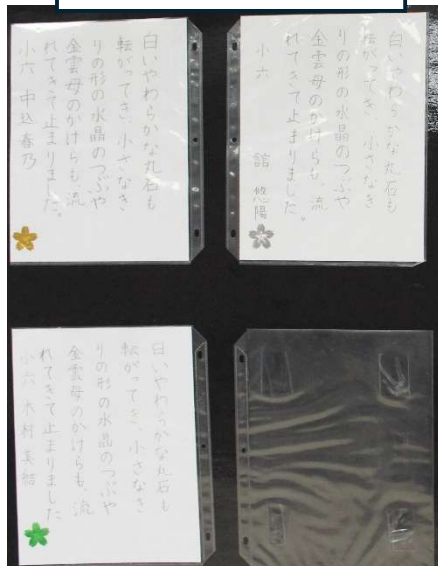 白いやわらかな丸石も
転がってき、小さなき
りの形の水晶のつぶや
金雲母のかけらも、流
れてきて止まりました。
小六 中込春乃
白いやわらかな丸石も
転がってき、小さなき
りの形の水晶のつぶや
金雲母のかけらも、流
れてきて止まりました。
小六 舘 悠陽
白いやわらかな丸石も
転がってき、小さなき
りの形の水晶のつぶや
金雲母のかけらも、流
れてきて止まりました
小六 木村美結